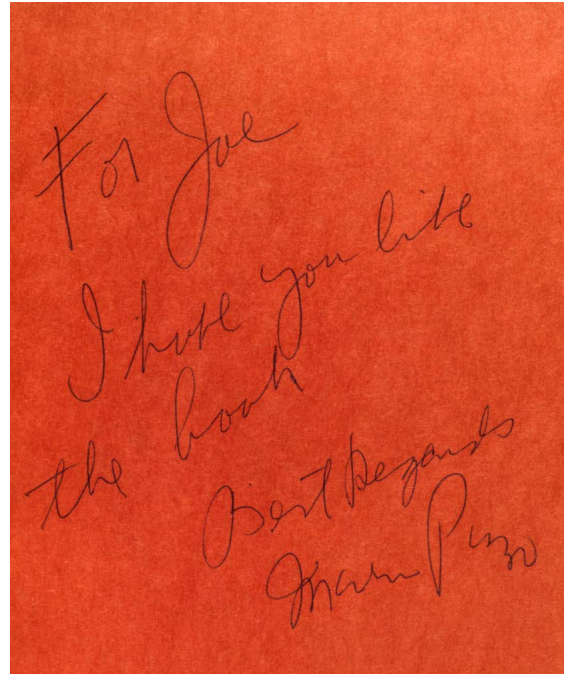 For Joe
I hope you like
the book
Best Regards
Mario Puzo